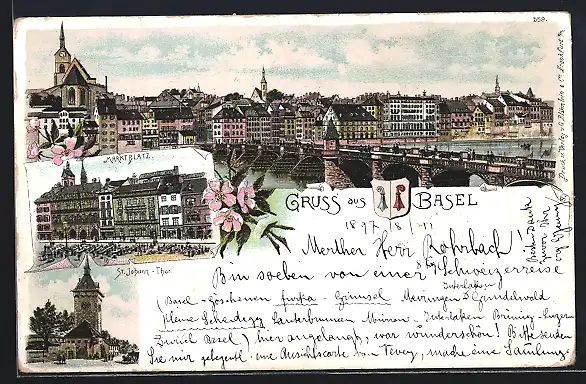 D59.
MARKTPLATZ.
St. Johann - Thor.
GRUSS aus BASEL
1897 18/11
Werther Herr Rohrbach!
Bin soeben von einer Schweizerreise
Interlaken
(Basel - Göschenen furka - Grimsel Meiringen Grindelwald
kleine Scheidegg Lauterbrunnen Mürren - Interlaken Brünig - Luzern
Zürich Basel) hier angelangt, war wunderschön! Bitte senden
Sie mir gelegentl. eine Ansichtscarte von Vevey, mache eine Samlung